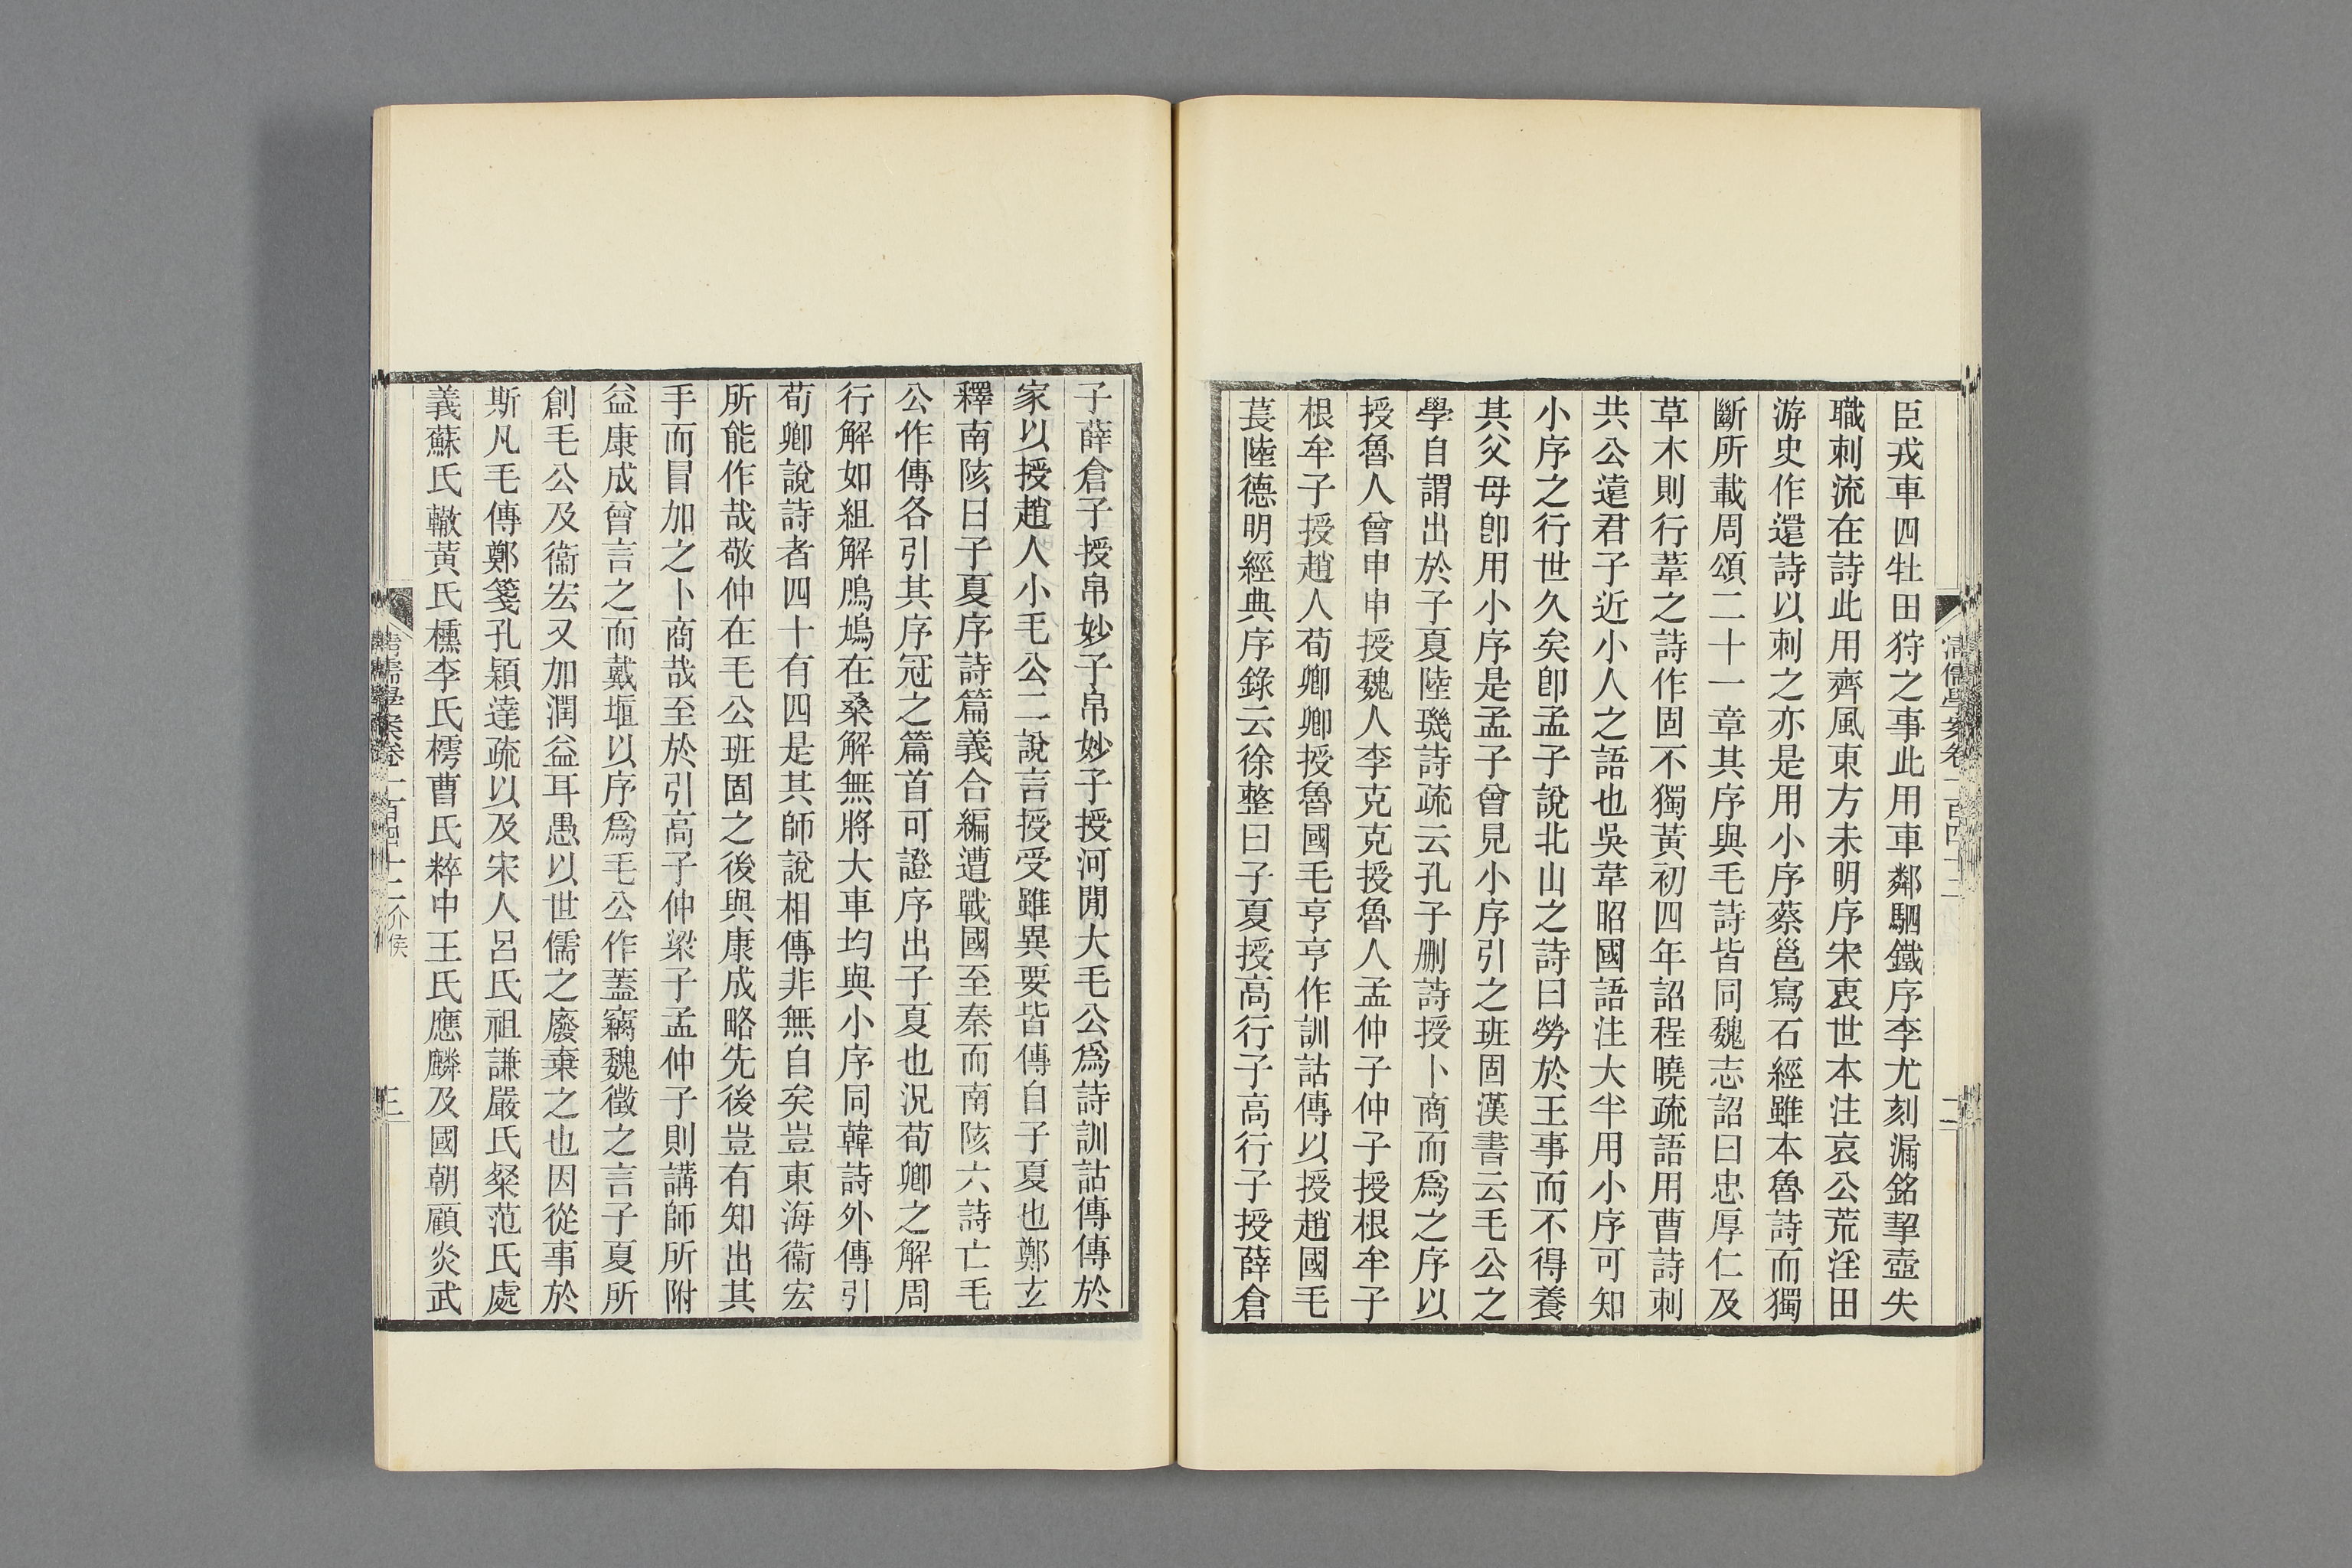 臣戎車四牡田狩之事此用車鄰駟鐵序李尤刻漏銘挈壺失
職刺流在詩此用齊風東方未明序宋衷世本注哀公荒淫田
游史作還詩以刺之亦是用小序蔡邕寫石經雖本魯詩而獨
斷所載周頌二十一章其序與毛詩皆同魏志詔曰忠厚仁及
草木則行葦之詩作固不獨黃初四年詔程曉疏語用曹詩刺
共公遠君子近小人之語也吳韋昭國語注大半用小序可知
小序之行世久矣卽孟子說北山之詩曰勞於王事而不得養
其父母卽用小序是孟子曾見小序引之班固漢書云毛公之
學自謂出於子夏陸璣詩疏云孔子删詩授卜商而爲之序以
授魯人曾申申授魏人李克克授魯人孟仲子仲子授根牟子
根牟子授趙人荀卿卿授魯國毛亨亨作訓詁傳以授趙國毛
萇陸德明經典序錄云徐整曰子夏授高行子高行子授薛倉
清儒學案卷二百四十二
二
子薛倉子授帛妙子帛妙子授河閒大毛公爲詩訓詁傳傳於
家以授趙人小毛公二說言授受雖異要皆傳自子夏也鄭玄
釋南陔曰子夏序詩篇義合編遭戰國至秦而南陔六詩亡毛
公作傳各引其序冠之篇首可證序出子夏也況荀卿之解周
行解如組解鳲鳩在桑解無將大車均與小序同韓詩外傳引
荀卿說詩者四十有四是其師說相傳非無自矣豈東海衞宏
所能作哉敬仲在毛公班固之後與康成略先後豈有知出其
手而冒加之卜商哉至於引高子仲梁子孟仲子則講師所附
益康成曾言之而戴堰以序爲毛公作蓋竊魏徵之言子夏所
創毛公及衞宏又加潤益耳愚以世儒之廢棄之也因從事於
斯凡毛傳鄭箋孔穎達疏以及宋人呂氏祖謙嚴氏粲范氏處
義蘇氏轍黃氏櫄李氏樗曹氏粹中王氏應麟及國朝顧炎武
清儒學案卷二百四十二 介侯
三